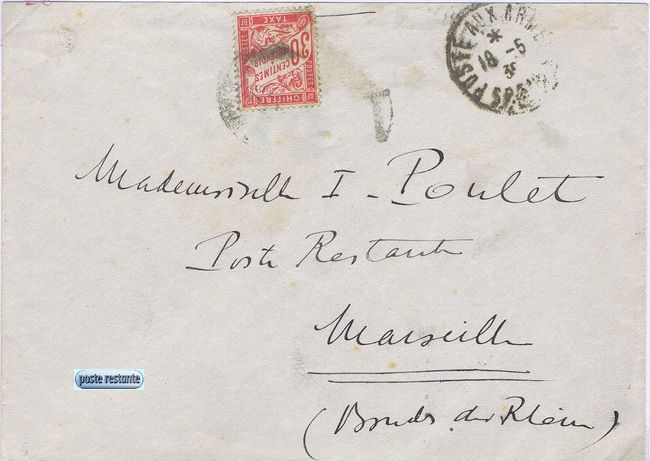 POSTE AUX ARM
18 - 5
TAXE
30
CENTIMES
À PERCEVOIR
POSTES
CHIFFRE
T
Mademoiselle I - Poulet
Poste Restante
Marseille
(Bouches du Rhône)
poste restante